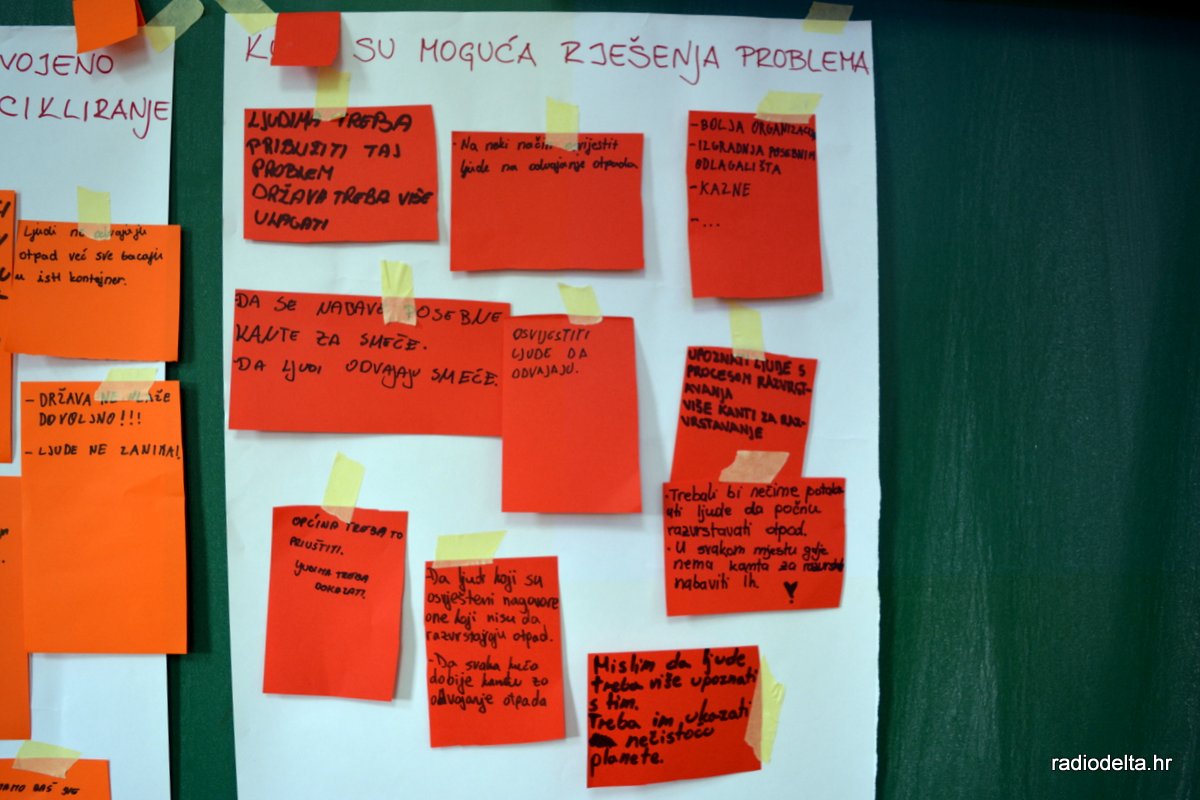 VOJENO
CIKLIRANJE
Ljudi ne odvajaju
otpad već sve bacaju
u isti kontejner.
- DRŽAVA NE ULAŽE
DOVOLJNO!!!
- LJUDE NE ZANIMA!
SU MOGUĆA RJEŠENJA PROBLEMA
LJUDIMA TREBA
PRIBLIŽITI TAJ
PROBLEM
DRŽAVA TREBA VIŠE
ULAGATI
· Na neki način osvijestit
ljude na odvajanje otpada
- BOLJA ORGANIZACIJA
- IZGRADNJA POSEBNIH
ODLAGALIŠTA
- KAZNE
- ...
- DA SE NABAVE POSEBNE
KANTE ZA SMEĆE.
- DA LJUDI ODVAJAJU SMEĆE.
OSVIJESTITI
LJUDE DA
ODVAJAJU.
UPOZNATI LJUDE S
PROCESOM RAZVRST-
AVANJA
VIŠE KANTI ZA RAZ-
VRSTAVANJE
· Trebali bi nečime potak
uti ljude da počnu
razvrstavati otpad.
· U svakom mjestu gdje
nema kanta za
nabaviti ih. ♥
OPĆINA TREBA TO
PRIUŠTITI.
LJUDIMA TREBA
DOKAZATI.
- Da ljudi koji su
osvješteni nagovore
one koji nisu da
razvrstavaju otpad.
- Da svaka kuća
dobije kantu za
odvajanje otpada
Mislim da ljude
treba više upoznati
s tim.
Treba im ukazati
nečistoću
planete.
radiodelta.hr